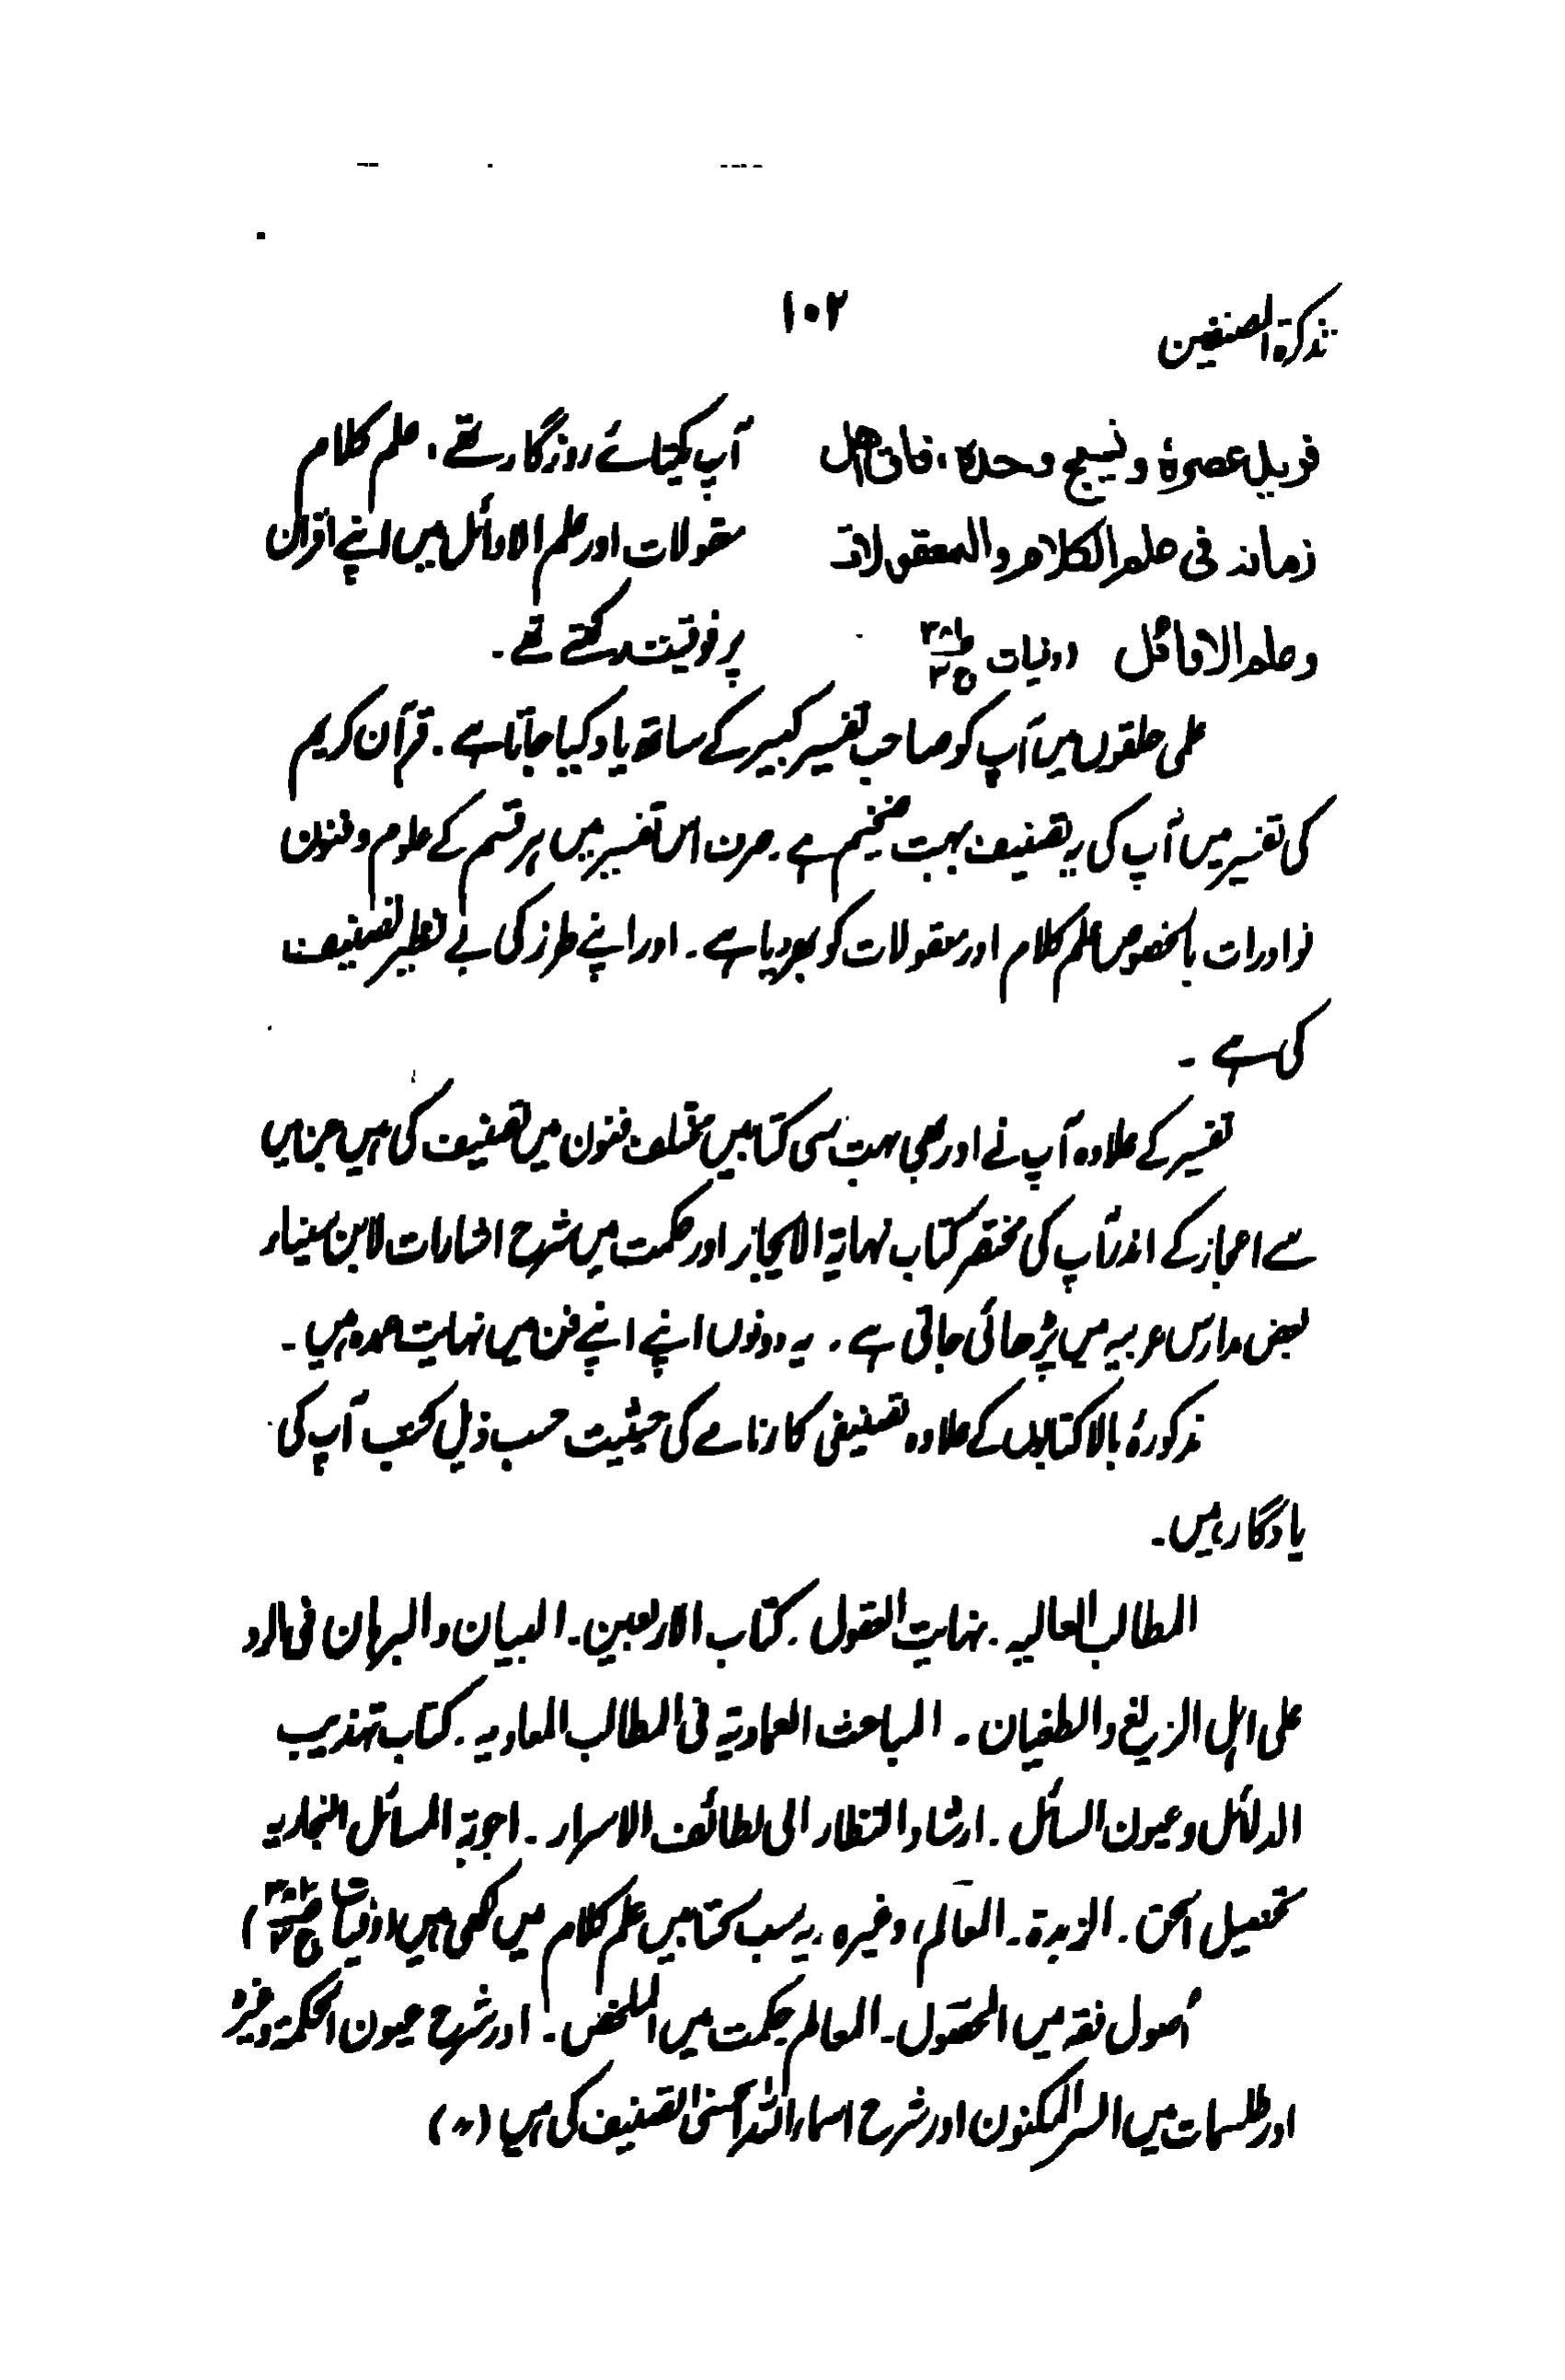 تذکرة المصنفین
۱۰۲
فرید عصره و نسیج وحده، فاق اهل
زمانه فی علم الکلام والمعقولات
وعلم الاوائل (وفیات
آپ یکتائے روزگار تھے، علم کلام
معقولات اور علم الاوائل میں اپنے اقران
پر فوقیت رکھتے تھے۔
علمی حلقوں میں آپ کو صاحب تفسیر کبیر کے ساتھ یاد کیا جاتا ہے۔ قرآن کریم
کی تفسیر میں آپ کی یہ تصنیف بہت ضخیم ہے۔ صرف اس تفسیر میں ہر قسم کے علوم و فنون
نوادرات بالخصوص علم کلام اور معقولات کو بھر دیا ہے۔ اور اپنے طرز کی بے نظیر تصنیف
کی ہے۔
تفسیر کے علاوہ آپ نے اور بھی بہت سی کتابیں مختلف فنون میں تصنیف کی ہیں جن میں
سے اعجاز کے اندر آپ کی مختصر کتاب نہایة الایجاز اور حکمت میں شرح اشارات لابن سینا،
بعض مدارس عربیہ میں پڑھائی جاتی ہے۔ یہ دونوں اپنے اپنے فن میں نہایت عمدہ ہیں۔
مذکورۂ بالا کتابوں کے علاوہ تصنیفی کارنامے کی حیثیت حسب ذیل کتب آپ کی
یادگار ہیں۔
المطالب العالیہ۔ نہایت العقول۔ کتاب الاربعین۔ البیان والبرہان فی الرد
علی اہل الزیغ والطغیان۔ المباحث العمادیة فی المطالب المعادیہ۔ کتاب تہذیب
الدلائل وعیون السائل۔ ارشاد النظار الی لطائف الاسرار۔ اجوبة المسائل النجاریہ
تحصیل الحق۔ الزبدة۔ المعالم، وغیرہ، یہ سب کتابیں علم کلام میں لکھی ہیں (وفیات
اُصول فقہ میں المحصول۔ المعالم حکمت میں الملخص۔ اور شرح عیون الحکمة وغیرہ
اور طلسمات میں السر المکنون اور شرح اسماء اللہ الحسنیٰ تصنیف کی ہیں